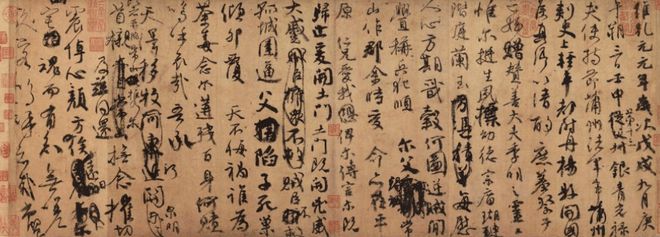 維乾元元年歲次戊戌九月庚
午朔三日壬申第十三叔銀青光祿
夫使持節蒲州諸軍事蒲州
刺史上輕車都尉丹楊縣開國
侯真卿以清酌庶羞祭于
亡姪贈贊善大夫季明之靈曰
惟爾挺生夙標幼德宗廟瑚璉
階庭蘭玉每慰
人心方期戩穀何圖逆賊閒
釁稱兵犯順爾父竭誠
常山作郡余時受命亦在平
原仁兄愛我俾爾傳言爾既
歸止爰開土門土門既開凶威
大蹙賊臣不救
孤城圍逼父陷子死巢
傾卵覆天不悔禍誰為
荼毒念爾遘殘百身何贖
嗚乎哀哉吾承
天澤移牧河關泉明
比者再陷常山攜爾
首櫬及茲同還撫念摧切
震悼心顏方俟遠日
卜爾幽宅魂而有知無嗟
久客嗚呼哀哉尚饗